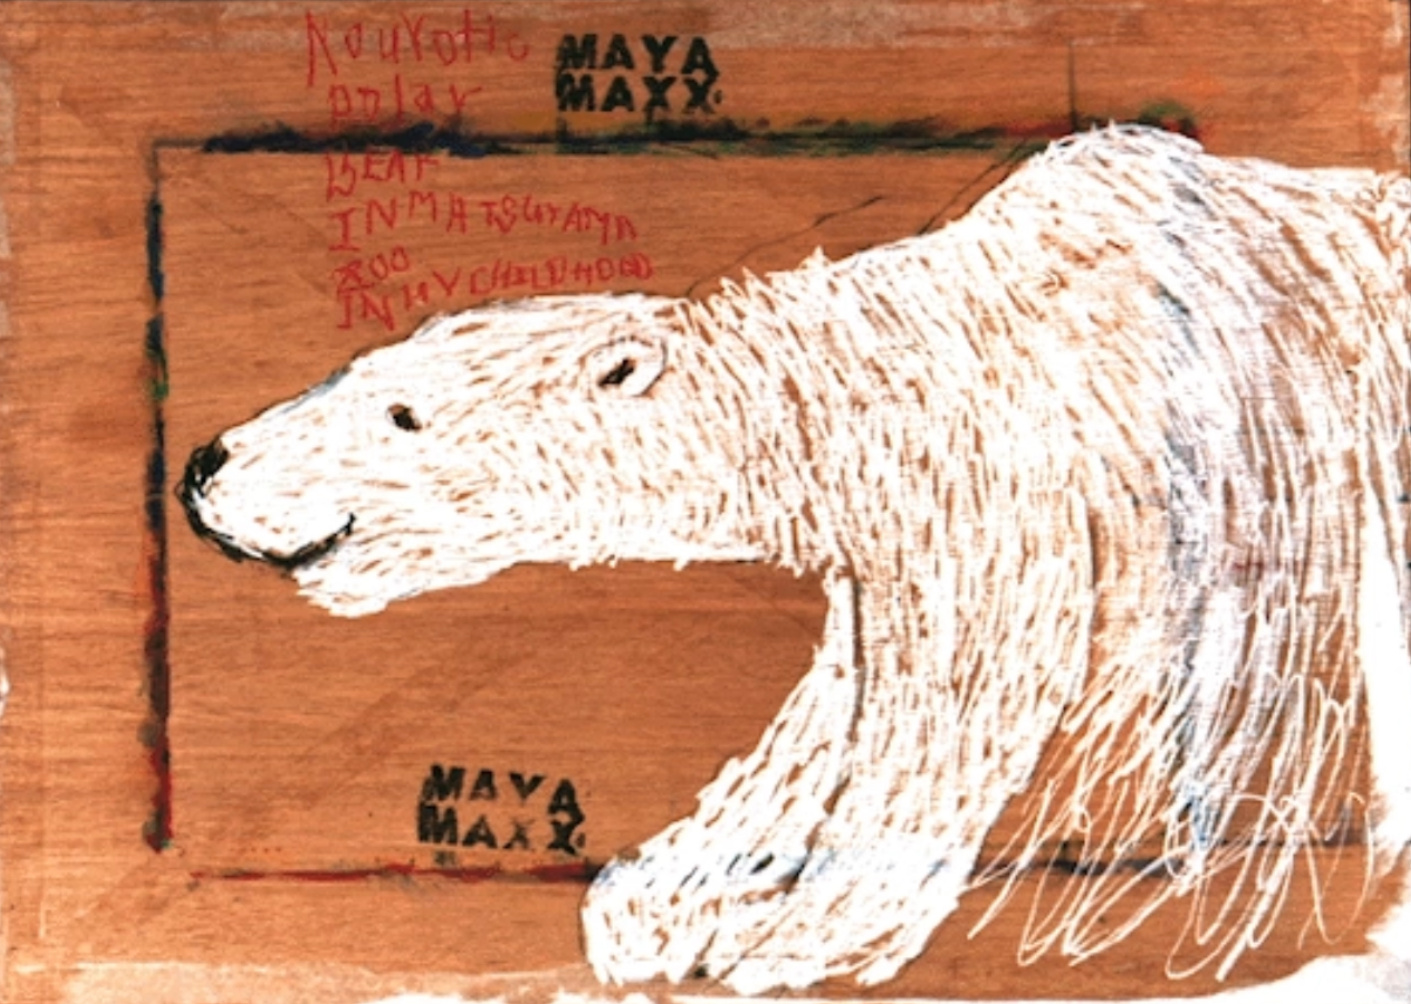 Nourotic
polar
BEAR
IN MATSUYAMA
ZOO
IN MY CHILDHOOD
MAYA
MAXX.
MAYA
MAXX.